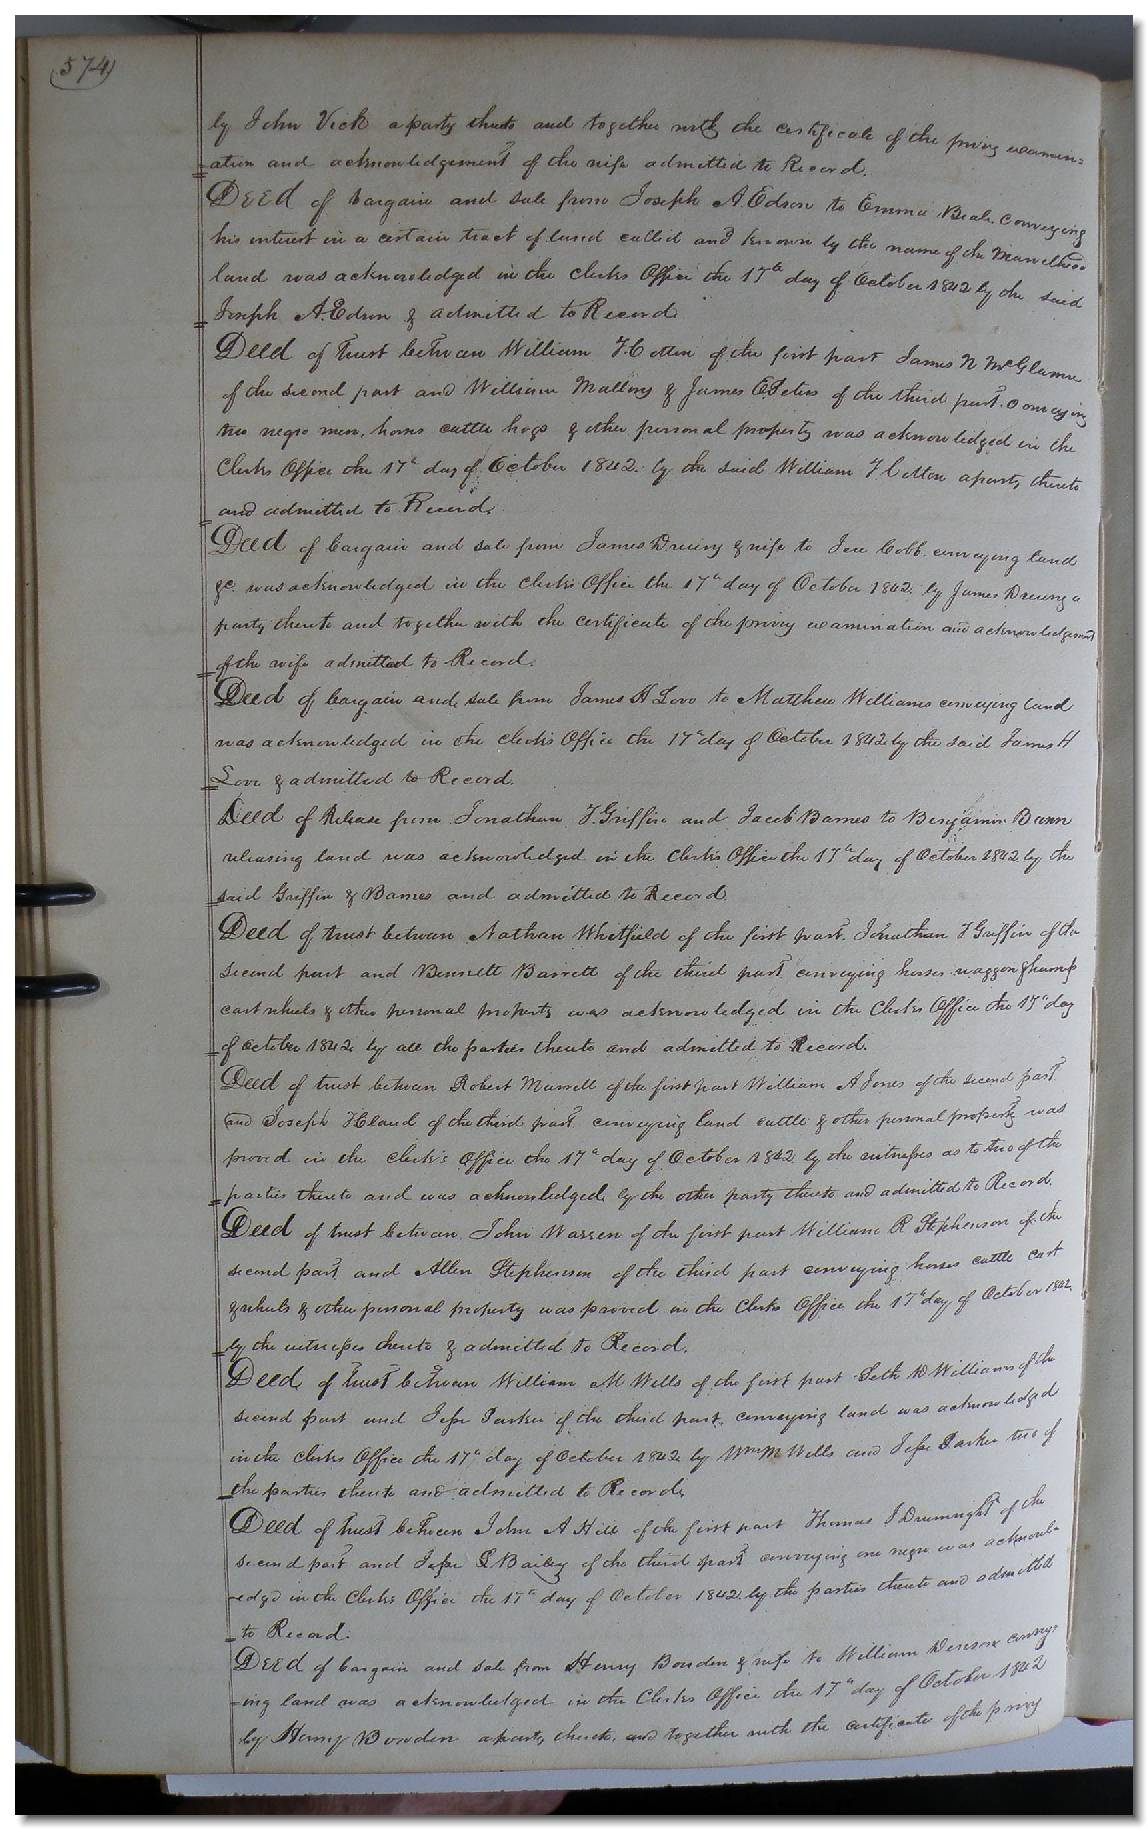 (574)
by John Vick a party thereto and together with the certificate of the privy examin=
=ation and acknowledgement of the wife admitted to Record.
DEED of bargain and sale from Joseph A. Edson to Emma Beale conveying
his interest in a certain tract of land called and known by the name of the
land was acknowledged in the Clerks Office the 17th day of October 1842 by the said
Joseph A. Edson & admitted to Record.
Deed of trust between William T. Cotten of the first part James N McGlamre
of the second part and William Mallory & James E Peters of the third part. Conveying
two negro men, horses cattle hogs & other personal property was acknowledged in the
Clerks Office the 17th day of October 1842. by the said William T Cotten a party thereto
and admitted to Record.
Deed of bargain and sale from James Drewry & wife to Jere Cobb. conveying land
&c. was acknowledged in the Clerk's Office the 17th day of October 1842. by James Drewry a
party thereto and together with the certificate of the privy examination and acknowledgement
of the wife admitted to Record.
Deed of bargain and sale from James H Love to Matthew Williams conveying land
was acknowledged in the Clerk's Office the 17th day of October 1842 by the said James H
Love & admitted to Record.
Deed of Release from Jonathan T. Griffin and Jacob Barnes to Benjamin Dunn
releasing land was acknowledged in the Clerk's Office the 17th day of October 1842 by the
said Griffin & Barnes and admitted to Record.
Deed of trust between Nathan Whitfield of the first part. Jonathan T Griffin of the
second part and Bennett Barrett of the third part conveying horses waggon & harness
cart wheels & other personal property was acknowledged in the Clerks Office the 17th day
of October 1842 by all the parties thereto and admitted to Record.
Deed of trust between Robert Murrell of the first part William A Jones of the second part
and Joseph H Claud of the third part conveying land cattle & other personal property was
proved in the Clerk's Office the 17th day of October 1842 by the witnesses as to two of the
parties thereto and was acknowledged by the other party thereto and admitted to Record.
Deed of trust between John Warren of the first part William R Stephenson of the
second part and Allen Stephenson of the third part conveying horses cattle cart
& wheels & other personal property was proved in the Clerks Office the 17th day of October 1842
by the witnesses thereto & admitted to Record.
Deed, of trust between William M Wells of the first part Seth D Williams of the
second part and Jesse Parker of the third part. conveying land was acknowledged
in the Clerks Office the 17th day of October 1842 by Wm M Wells and Jesse Parker two of
the parties thereto and admitted to Record,
Deed of trust between John A Hill of the first part Thomas J Drumright of the
second part and Jesse S Bailey of the third part conveying one negro was acknowl-
-edged in the Clerks Office the 17th day of October 1842. by the parties thereto and admitted
to Record.
DEED of bargain and sale from Henry Bowden & wife to William Denson convey-
-ing land was acknowledged in the Clerks Office the 17th day of October 1842
by Henry Bowden a party thereto, and together with the certificate of the privy